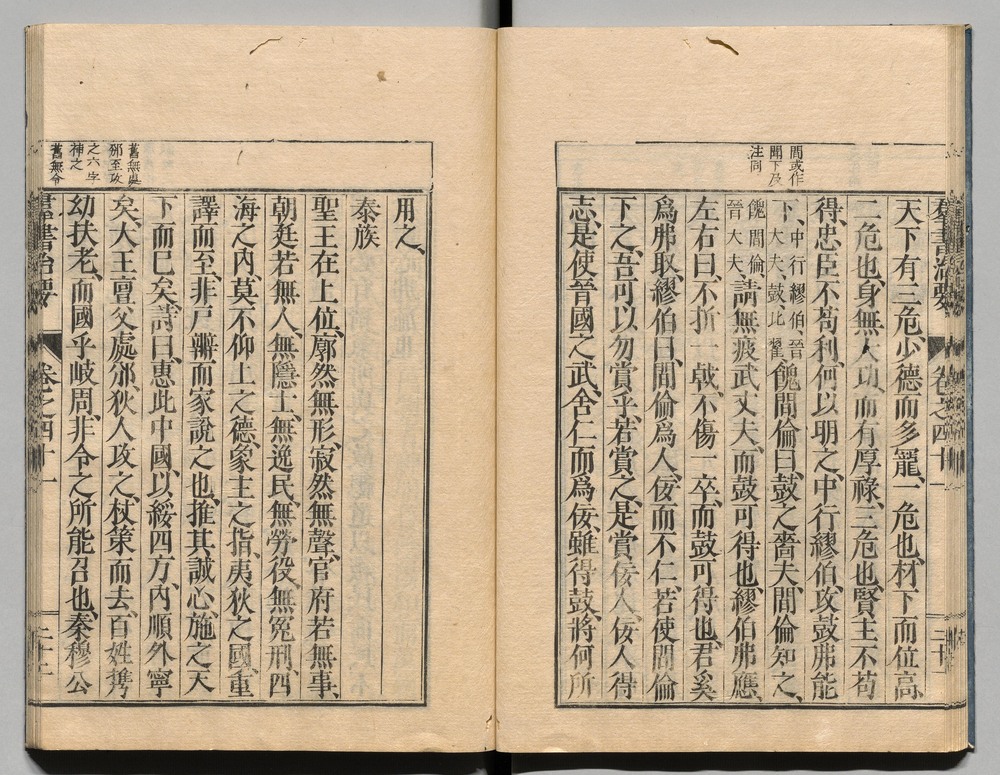 間或作
聞下及
注同
羣書治要 卷之四十一
天下有三危、少德而多寵、一危也、材下而位高、
二危也、身無大功、而有厚祿、三危也、賢主不苟
得、忠臣不苟利、何以明之、中行繆伯攻鼓弗能
下、中行繆伯、晉大夫、鼓、北翟、餽間倫曰、鼓之嗇夫、間倫知之、
餽間倫、晉大夫、請無疲武丈夫、而鼓可得也、繆伯弗應、
左右曰、不折一戟、不傷一卒、而鼓可得也、君奚
爲弗取、繆伯曰、間倫爲人、佞而不仁、若使間倫
下之、吾可以勿賞乎、若賞之、是賞佞人、佞人得
志、是使晉國之武、舍仁而爲佞、雖得鼓、將何所
用之、
泰族
聖王在上位、廓然無形、寂然無聲、官府若無事、
朝廷若無人、無隱士、無逸民、無勞役、無冤刑、四
海之內、莫不仰上之德、象主之指、夷狄之國、重
譯而至、非戶辯而家說之也、推其誠心、施之天
下而已矣、詩曰、惠此中國、以綏四方、內順外寧
矣、大王亶父處邠、狄人攻之、杖策而去、百姓攜
幼扶老、而國乎岐周、非令之所能召也、秦穆公
邠至攻
之六字
神之
舊無令
羣書治要 卷之四十一